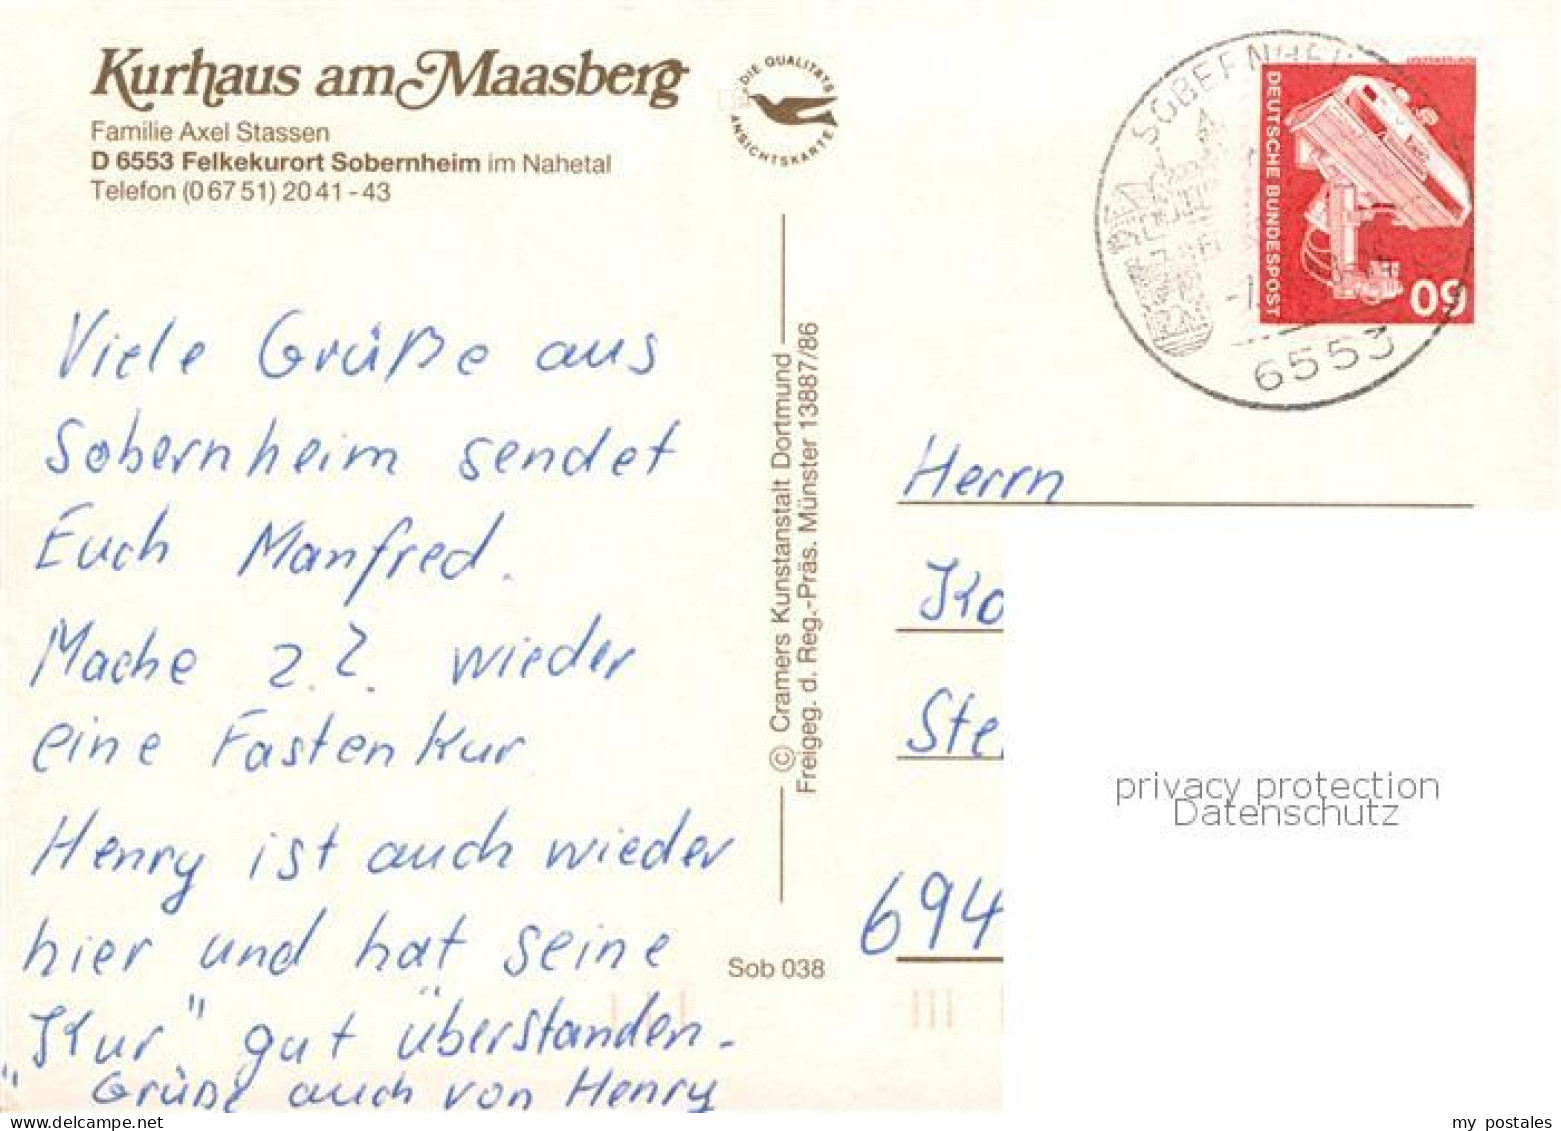 Kurhaus am Maasberg
Familie Axel Stassen
D 6553 Felkekurort Sobernheim im Nahetal
Telefon (0 67 51) 20 41 - 43
DIE QUALITÄTS
ANSICHTSKARTE
SOBERNHEI
6553
DEUTSCHE BUNDESPOST
60
Viele Grüße aus
Sobernheim sendet
Euch Manfred.
Mache z.Z. wieder
eine Fastenkur
Henry ist auch wieder
hier und hat seine
"Kur" gut überstanden.
Grüße auch von Henry
© Cramers Kunstanstalt Dortmund
Freigeg. d. Reg.-Präs. Münster 13887/86
Sob 038
Herrn
Ko
Ste
694
privacy protection
Datenschutz
my postales